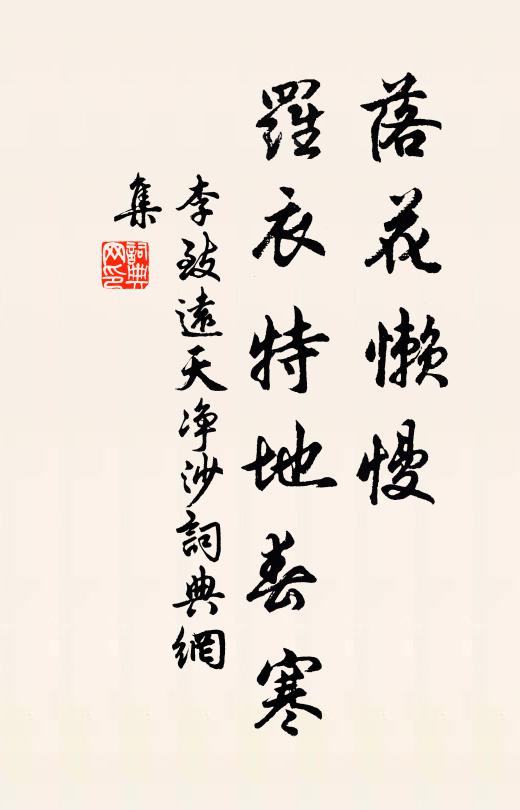 落花懒慢
羅衣特地春寒
李致遠天净沙詞典網
集
詞典
网印